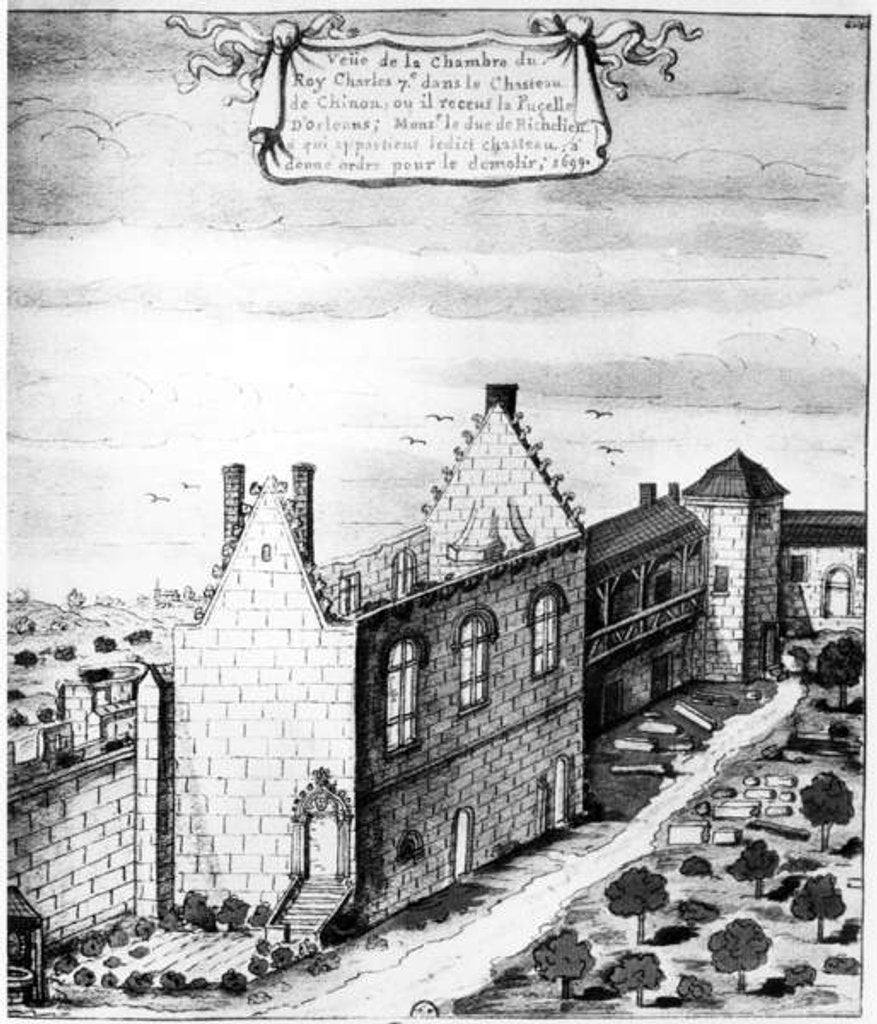 Veüe de la Chambre du
Roy Charles 7.e dans le Chasteau
de Chinon, ou il receut la Pucelle
D'orleans; Monsr. le duc de Richelieu
a qui appartient ledict chasteau, a
donne ordre pour le demolir, 1699.